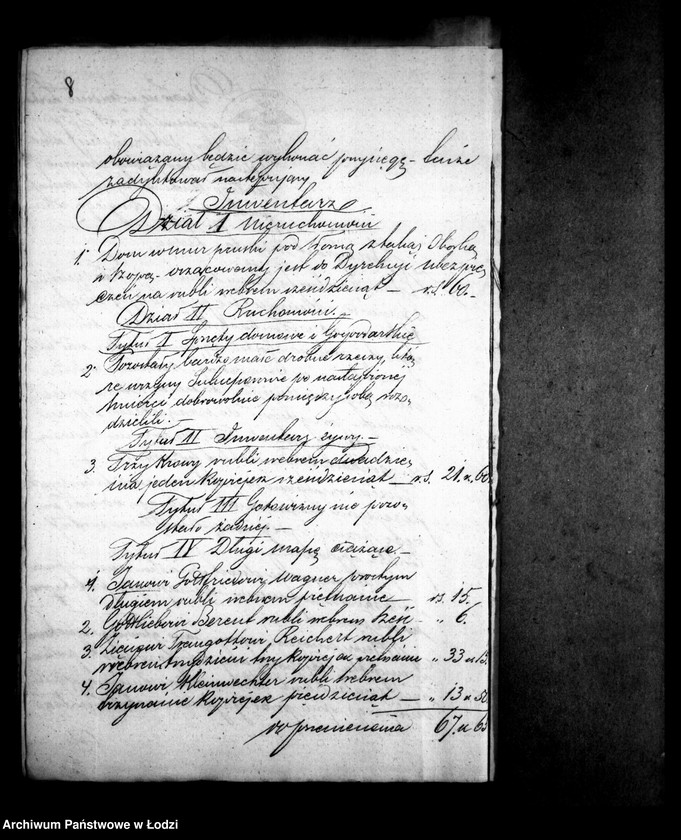 8
obowiązany będzie wykonać przysięgę – tenże
zadyktował następujący
Inwentarz
Dział I Nieruchomości
1. Dom w mur pruski pod słomą z stalią Oborką
i szopą oszacowany jest do Dyrekcyi Ubezpie
czeń na rubli srebrem sześdziesiąt – r.s. 60.–
Dział II Ruchomości.–
Tytuł I Sprzęty domowe i Gospodarskie
2. Pozostały bardzo małe drobne rzeczy, któ,
re wszyscy Sukcesorowie po nastąpionej
śmierci dobrowolnie pomiędzy sobą roze,
dzielili.–
Tytuł II Inwentarz żywy.–
3. Trzy Krowy rubli srebrem dwadzie,
ścia jeden kopiejek sześdziesiąt – r.s. 21. k. 60
Tytuł III Gotowizny nie pozo,
stało żadnej.–
Tytuł IV Długi massę ciążące.–
1. Janowi Gottfriedowi Wagner prostym
długiem rubli srebrem piętnaście – r.s. 15.
2. Gottliebowi Berent rubli srebrem sześć – „ 6.
3. Traugottowi Reichert rubli
srebrem trzydzieści trzy kopiejek piętnaście „ 33 k 15.
4. Janowi Kleinwechter rubli srebrem
trzynaście kopiejek pięćdziesiąt – „ 13 k 50
do przeniesienia 67. k 65
Archiwum Państwowe w Łodzi